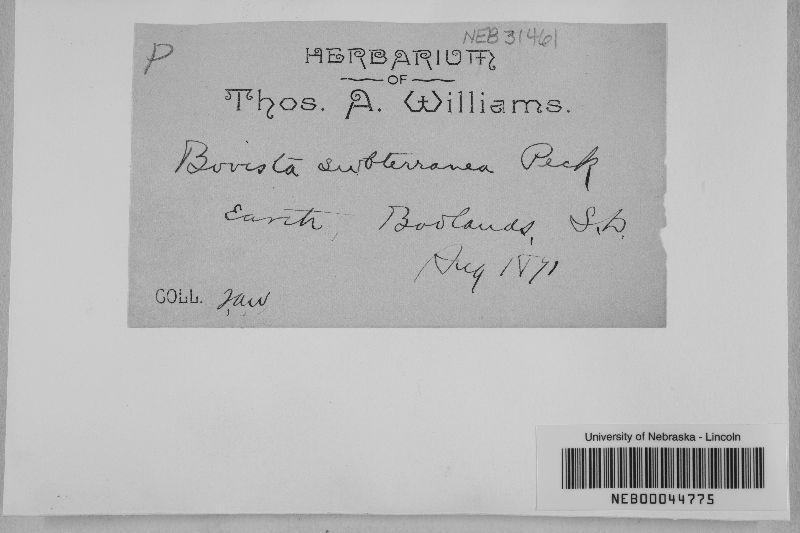 P
NEB 31461
HERBARIUM
OF
Thos. A. Williams.
Bovista subterranea Peck
Earth, Badlands, S.D.
Aug 1891
COLL. TAW
University of Nebraska - Lincoln
NEB00044775